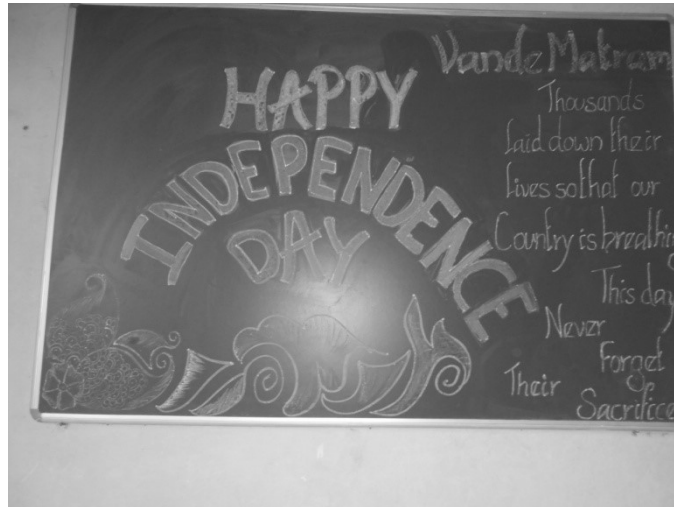 HAPPY
INDEPENDENCE
DAY
Vande Matram
Thousands
laid down their
lives so that our
Country is breathing
This day
Never
Forget
Their
Sacrifice